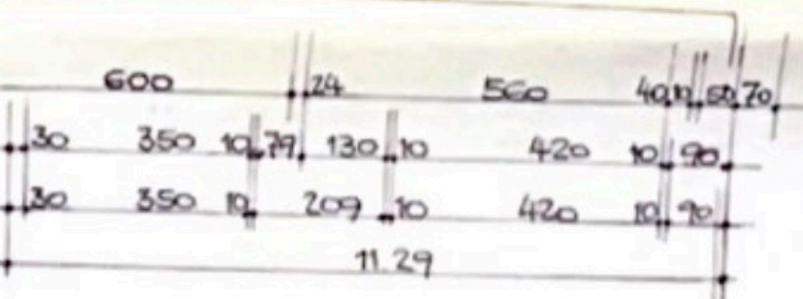 600 24 560 40 10 50 70
30 350 10 79 130 10 420 10 90
30 350 10 209 10 420 10 90
11.29